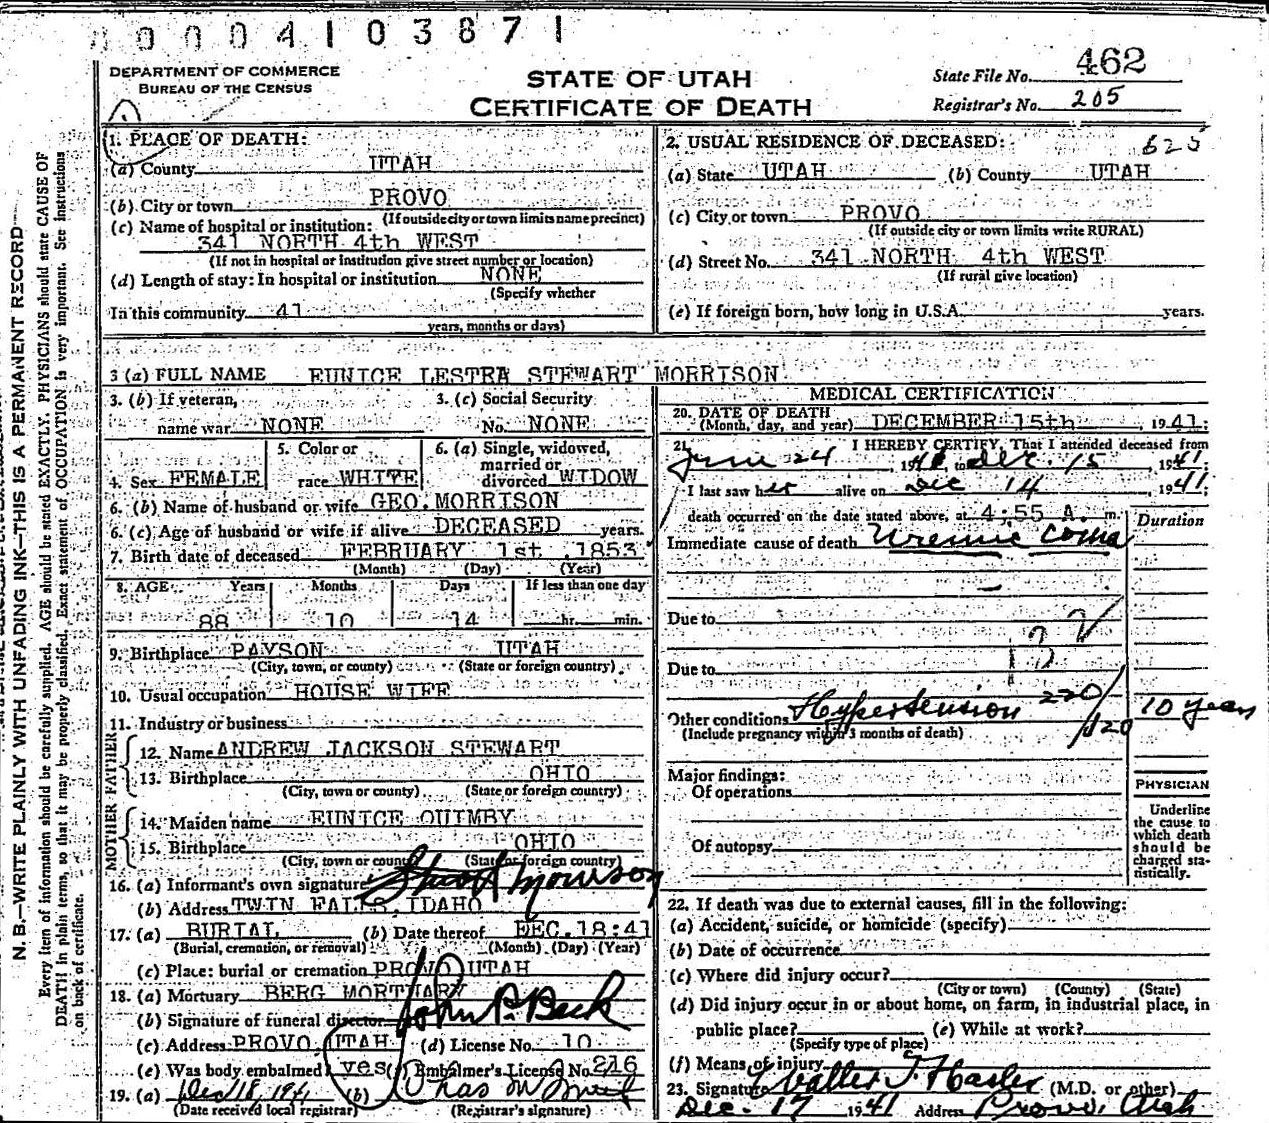 0 0 0 4 1 0 3 8 7 1
DEPARTMENT OF COMMERCE
BUREAU OF THE CENSUS
STATE OF UTAH
CERTIFICATE OF DEATH
State File No. 462
Registrar's No. 205
1. PLACE OF DEATH:
(a) County UTAH
(b) City or town PROVO
(If outside city or town limits name precinct)
(c) Name of hospital or institution:
341 NORTH 4th WEST
(If not in hospital or institution give street number or location)
(d) Length of stay: In hospital or institution NONE
(Specify whether
In this community 41
years, months or days)
2. USUAL RESIDENCE OF DECEASED: 625
(a) State UTAH (b) County UTAH
(c) City or town PROVO
(If outside city or town limits write RURAL)
(d) Street No. 341 NORTH 4th WEST
(If rural give location)
(e) If foreign born, how long in U.S.A. years.
3 (a) FULL NAME EUNICE LESTRA STEWART MORRISON
3. (b) If veteran, name war NONE
3. (c) Social Security No. NONE
4. Sex FEMALE
5. Color or race WHITE
6. (a) Single, widowed, married or divorced WIDOW
6. (b) Name of husband or wife GEO. MORRISON
6. (c) Age of husband or wife if alive DECEASED years.
7. Birth date of deceased FEBRUARY 1st, 1853
(Month) (Day) (Year)
8. AGE: Years Months Days If less than one day
88 10 14 hr. min.
9. Birthplace PAYSON UTAH
(City, town, or county) (State or foreign country)
10. Usual occupation HOUSE WIFE
11. Industry or business
FATHER
12. Name ANDREW JACKSON STEWART
13. Birthplace OHIO
(City, town or county) (State or foreign country)
MOTHER
14. Maiden name EUNICE QUIMBY
15. Birthplace OHIO
(City, town or county (State or foreign country)
16. (a) Informant's own signature Morrison
(b) Address TWIN FALLS, IDAHO
17. (a) BURIAL (b) Date thereof DEC. 18:41
(Burial, cremation, or removal) (Month) (Day) (Year)
(c) Place: burial or cremation PROVO UTAH
18. (a) Mortuary BERG MORTUARY
(b) Signature of funeral director John P. Beck
(c) Address PROVO, UTAH (d) License No. 10
(e) Was body embalmed yes (f) Embalmer's License No. 216
19. (a) Dec 18, 1941 (b) Chas
(Date received local registrar) (Registrar's signature)
MEDICAL CERTIFICATION
20. DATE OF DEATH
(Month, day, and year) DECEMBER 15th, 1941:
21. I HEREBY CERTIFY, That I attended deceased from
June 24, 19 to Dec. 15 1941;
I last saw her alive on Dec 14 1941;
death occurred on the date stated above, at 4:55 A. m.
Duration
Immediate cause of death Uremic Coma
Due to
Due to
132
Other conditions Hypertension 220/120 10 years
(Include pregnancy within 3 months of death)
Major findings:
Of operations
Of autopsy
PHYSICIAN
Underline
the cause to
which death
should be
charged sta-
tistically.
22. If death was due to external causes, fill in the following:
(a) Accident, suicide, or homicide (specify)
(b) Date of occurrence
(c) Where did injury occur?
(City or town) (County) (State)
(d) Did injury occur in or about home, on farm, in industrial place, in
public place? (e) While at work?
(Specify type of place)
(f) Means of injury
23. Signature Walter T. Hasler (M.D. or other)
Dec. 17 1941 Address Provo, Utah
N. B.—WRITE PLAINLY WITH UNFADING INK—THIS IS A PERMANENT RECORD
Every item of information should be carefully supplied. AGE should be stated EXACTLY. PHYSICIANS should state CAUSE OF
DEATH in plain terms, so that it may be properly classified. Exact statement of OCCUPATION is very important. See instructions
on back of certificate.